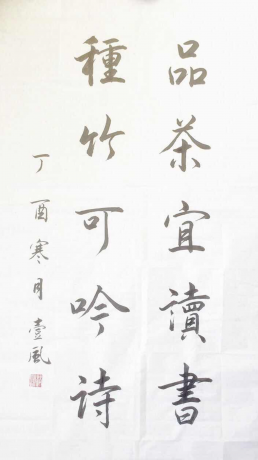 品茶宜讀書
種竹可吟詩
丁酉寒月壹風